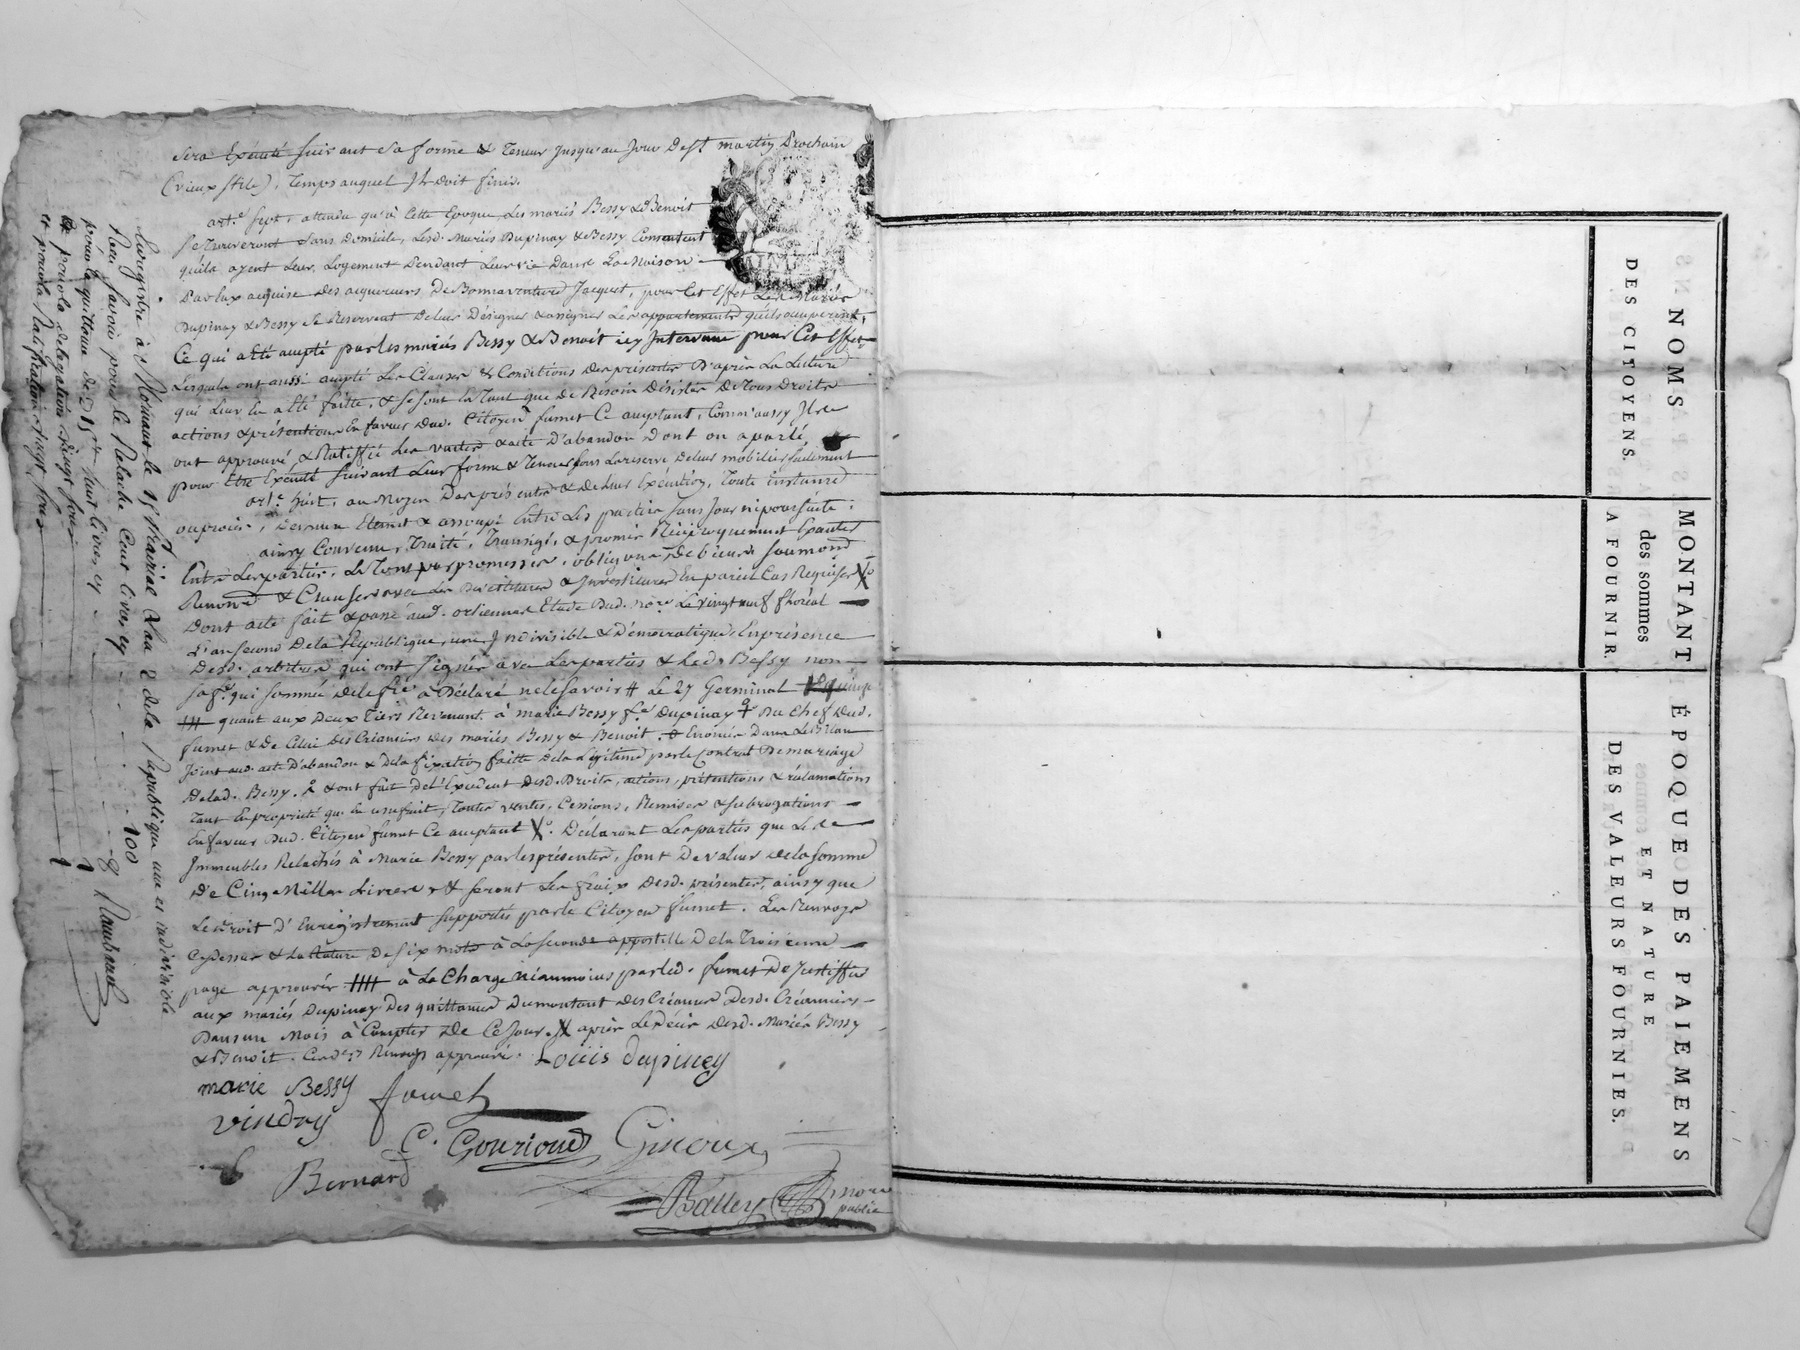 sera Exécuté suivant sa forme & Teneur jusqu'au Jour de st martin Prochain
(vieux stile), Temps auquel Il doit finir.
art.e sept, attendu qu'à Cette Epoque Les mariés Bessy & Benoit
se Trouveront sans Domicile, Lesd. Mariés Dupinay & Bessy Consentent
qu'ils ayent Leur Logement Pendant Leur vie Dans La Maison
Par Eux acquise des acquereurs De Bonnaventure Jacquet, pour Cet Effet Les Mariés
Dupinay & Bessy se Reservent De leur Désigner & assigner Les appartements qu'ils occuperont,
Ce qui a Eté accepté par les mariés Bessy & Benoit icy Intervenu pour Cet Effet
Lesquels ont aussi accepté Les Clauses & Conditions des présentes D'après La Lecture
qui Leur En a Eté faitte, & se sont En Tant que de Besoin Désistés De Tous Droits
actions & prétentions En faveur Dud. Citoyen fumet Ce acceptant, Comm'aussy Ils
ont approuvé & Ratiffié Les ventes & acte D'abandon Dont on a parlé,
pour Etre Exécuté suivant Leur forme & Teneur sous La reserve De leur mobilier seulement
art.e huit, au Moyen Des présentes & de leur Exécution, Toute instance
ou procès, Demeure Eteinte & assoupi Entre Les parties sans Jour ni poursuite.
ainsy Convenu, Traité, Transigé, & promis Réciproquement Exauter
Entre Les parties, Le Tout par promesses, obligon de biens, soumond
Renond & Clauses avec Les Devestitures & Investitures En pareil Cas Requises
Dont acte fait & passé aud. ordiennas Etude Dud. nore Le vingt neuf floréal
L'an second De la République, une Indivisible & Démocratique, En présence
Desd. arbitres qui ont signé avec Les parties & Led. Bessy non
sa fe qui sommée de le fre a Déclaré ne le savoir # Le 27 Germinal
quant aux Deux Tiers Revenant à marie Bessy fe Dupinay Du Chef Dud.
fumet & De Celui Des Créanciers Des mariés Bessy & Benoit Enoncés Dans Le Bilan
Joint aud. acte D'abandon & De la fixation faitte De la Légitime par le Contrat De mariage
De lad. Bessy. & ont fait De l'Excédent Desd. Droits, actions, prétentions & réclamations
Tant En propriété qu'En usufruit, Toutes ventes, Cessions, Remises & subrogations
En faveur Dud. Citoyen fumet Ce acceptant. Déclarant Les parties que Les
Immeubles Relachés à Marie Bessy par les présentes, sont De valeur De la somme
De Cinq Mille Livres, & seront Les fraix Desd. présentes, ainsy que
Le Droit d'Enregistrement supportés par le Citoyen fumet. Les Renvoys
Cy dessus & La Rature De six mots à La seconde appostille De la Troisieme
page approuvés # à La Charge néanmoins par led. fumet De Justiffier
aux mariés Dupinay Des quittances Du montant des Créances Desd. Créanciers
Dans un Mois à Compter De Ce Jour. après Le Décès Desd. Mariés Bessy
& Benoit. Ces ders Renvoys approuvés. Louis dupiney
marie Bessy fumet
vindry
C. Gourioud Ginoux
Bernard
Balley nore
public
Enregistré à le 15 Prairial L'an 2 de la République une et indivisible
Reçu savoir pour le Relache Cent livres, cy 100
pour la quittance de huit livres, cy 8
pour la délégation vingt sols 1
et pour la Ratification vingt sols 1
NOMS
DES CITOYENS.
MONTANT
des sommes
A FOURNIR.
ÉPOQUE DES PAIEMENS
ET NATURE
DES VALEURS FOURNIES.